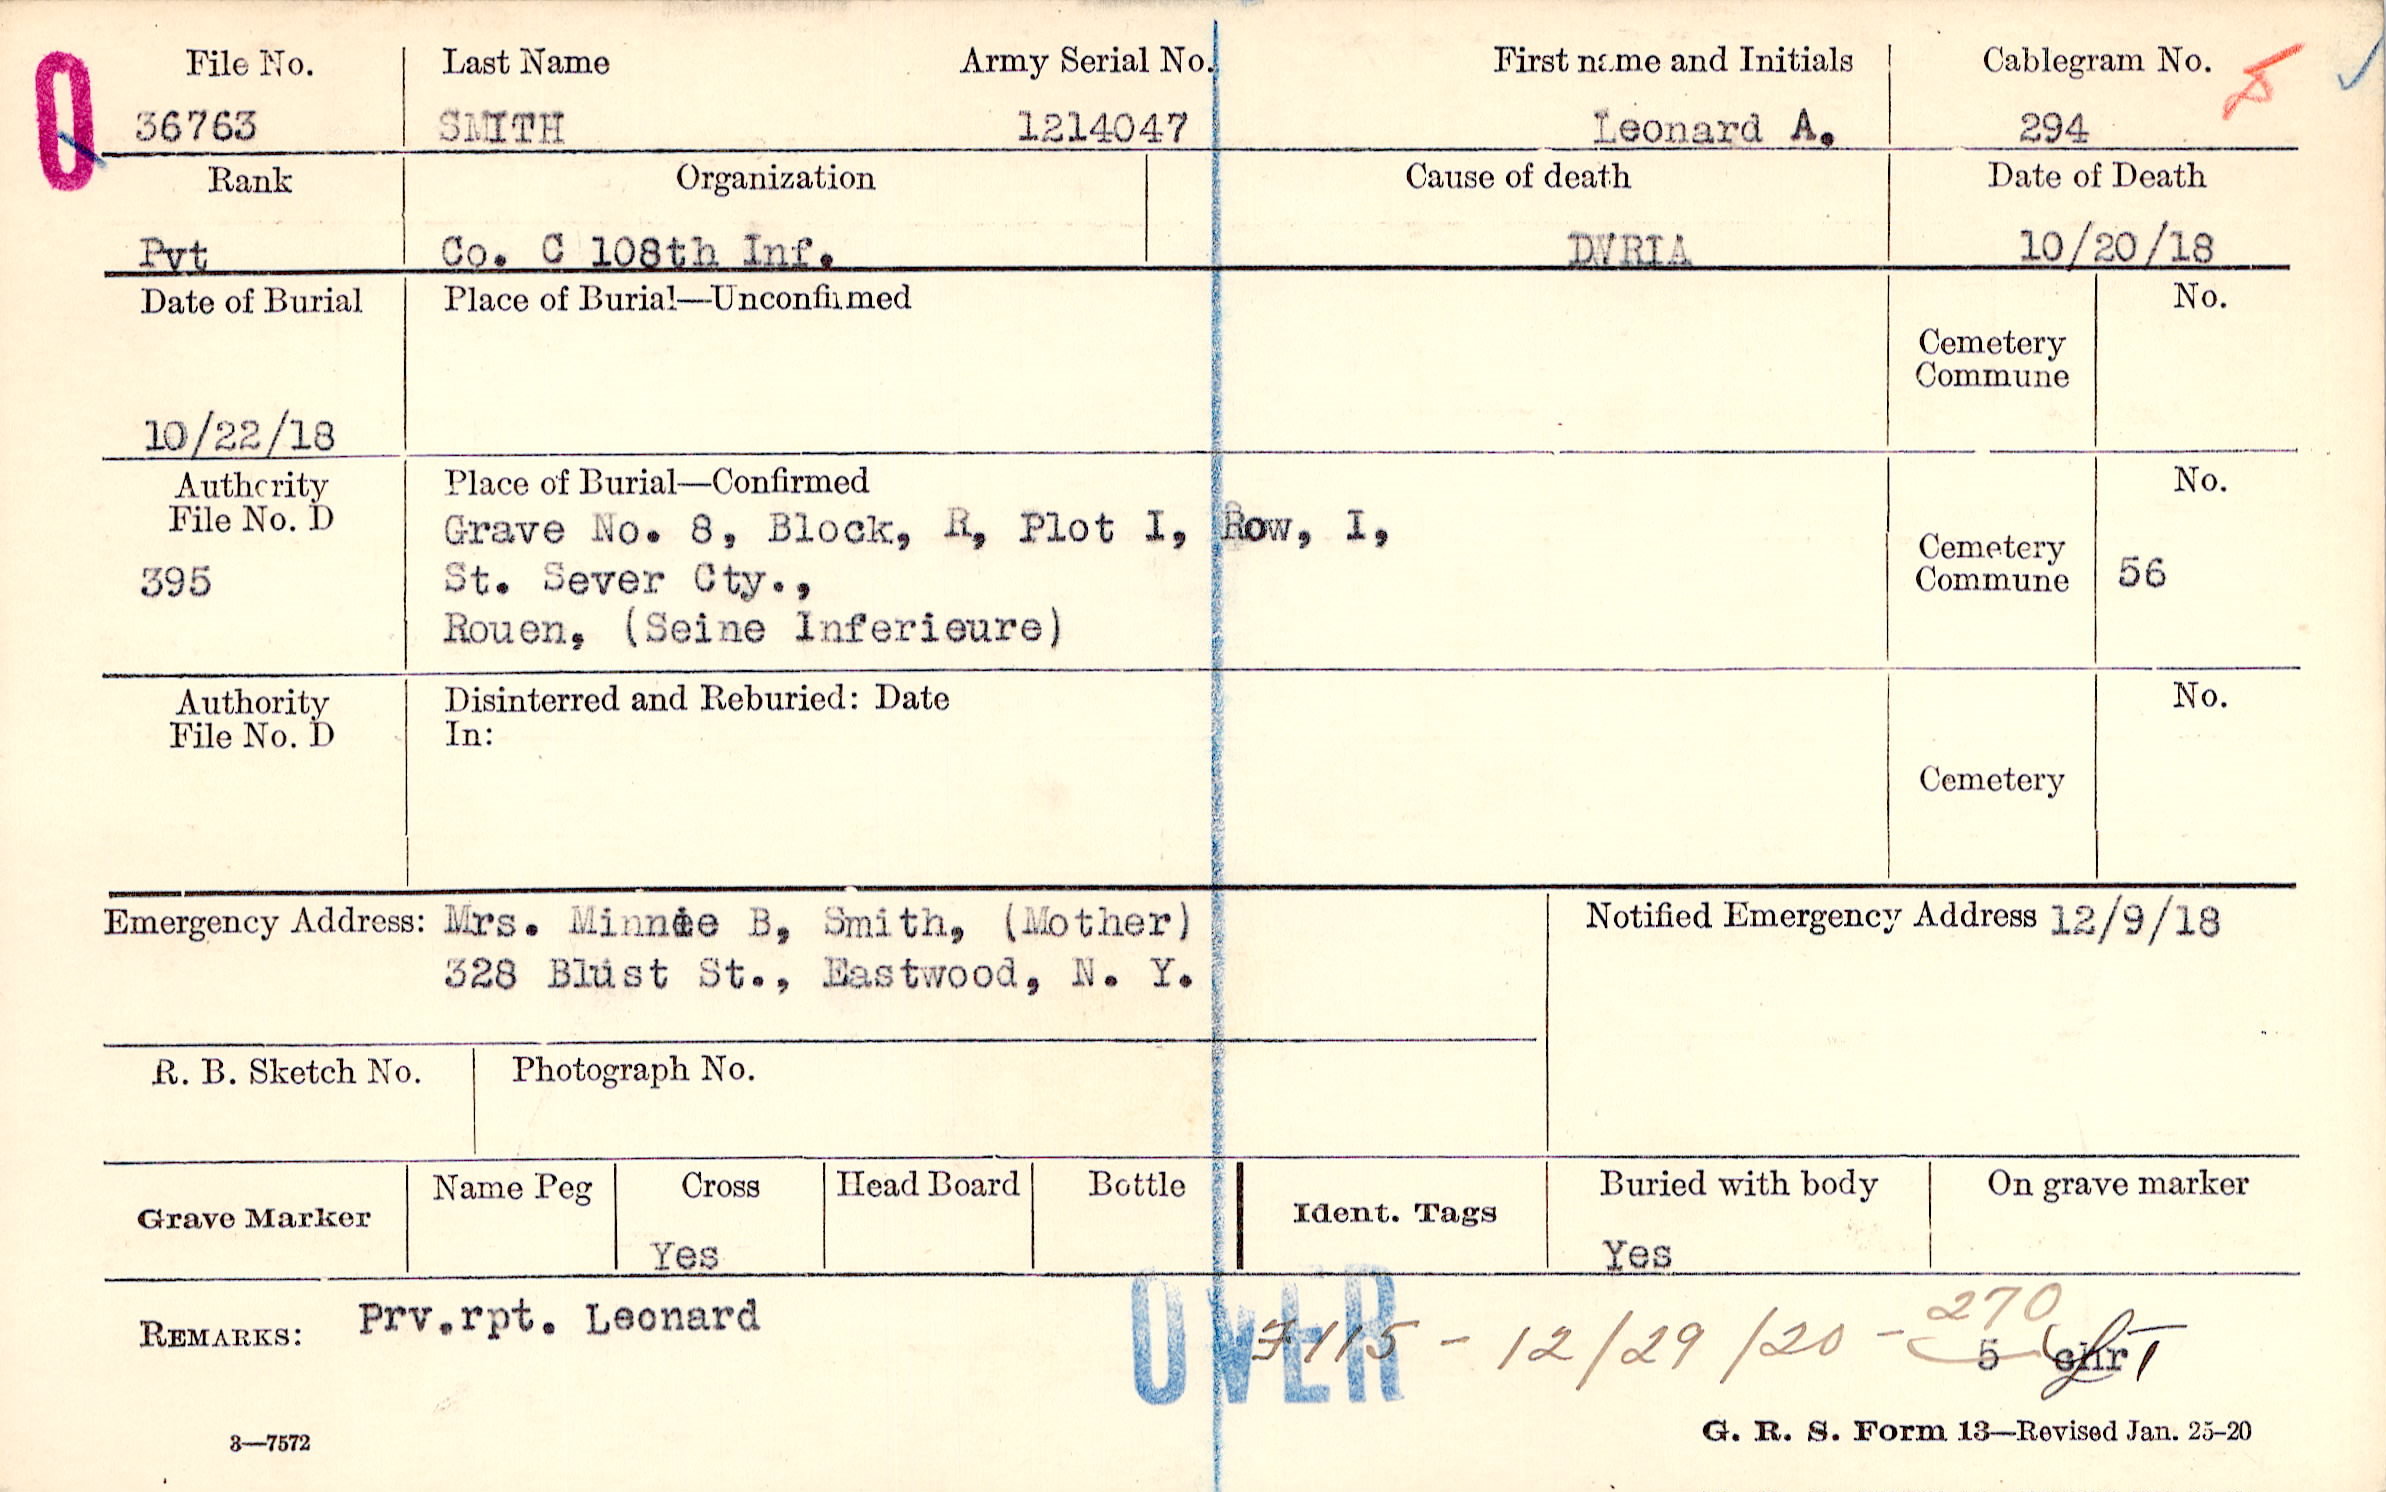 O
File No. Last Name Army Serial No. First name and Initials Cablegram No.
36763 SMITH 1214047 Leonard A. 294
Rank Organization Cause of death Date of Death
Pvt Co. C 108th Inf. DWRIA 10/20/18
Date of Burial Place of Burial—Unconfirmed No.
Cemetery
Commune
10/22/18
Authority Place of Burial—Confirmed No.
File No. D Grave No. 8, Block, R, Plot I, Row, I,
Cemetery
395 St. Sever Cty., Commune 56
Rouen, (Seine Inferieure)
Authority Disinterred and Reburied: Date No.
File No. D In:
Cemetery
Emergency Address: Mrs. Minnie B, Smith, (Mother) Notified Emergency Address 12/9/18
328 Blust St., Eastwood, N. Y.
R. B. Sketch No. Photograph No.
Name Peg Cross Head Board Bottle Buried with body On grave marker
Grave Marker Ident. Tags
Yes Yes
REMARKS: Prv.rpt. Leonard OVER 7115 - 12/29/20 - 270
5 chr
3—7572 G. R. S. Form 13—Revised Jan. 25-20